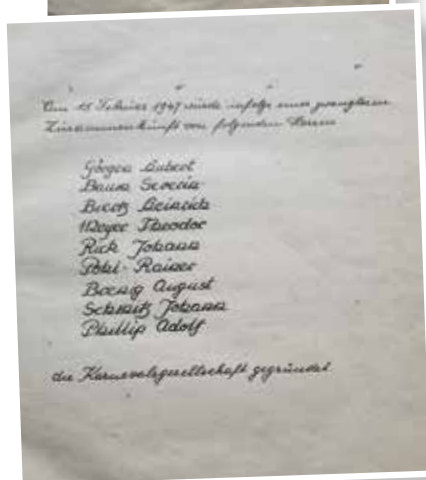 Am 15 Februar 1947 wurde infolge einer zwanglosen
Zusammenkunft von folgenden Herren
Görgen Hubert
Baum Severin
Heinrich
Meyer Theodor
Rick Johann
Pohl-Rainer
Boenig August
Schmitz Johann
Phillip Adolf
die Karnevalsgesellschaft gegründet